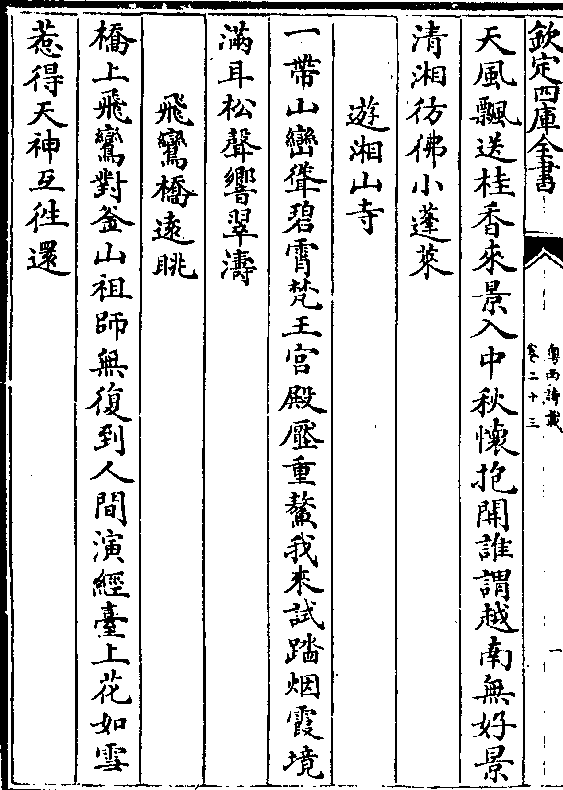 欽定四庫全書
粤西詩載
卷二十三
一
天風飄送桂香來景入中秋懷抱開誰謂越南無好景
清湘彷彿小蓬萊
遊湘山寺
一帶山巒聳碧霄梵王宮殿壓重鰲我來試踏烟霞境
滿耳松聲響翠濤
飛鸞橋遠眺
橋上飛鸞對釜山祖師無復到人間演經臺上花如雪
惹得天神互徃還